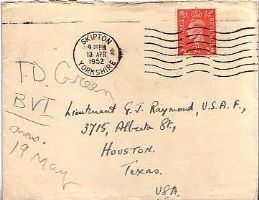 SKIPTON
9 PM
13 APR
1952
YORKSHIRE
T.D. Green
BVI
19 May
Lieutenant G.J. Raymond, U.S.A.F.,
3715, Alberta St.,
HOUSTON.
Texas.
USA